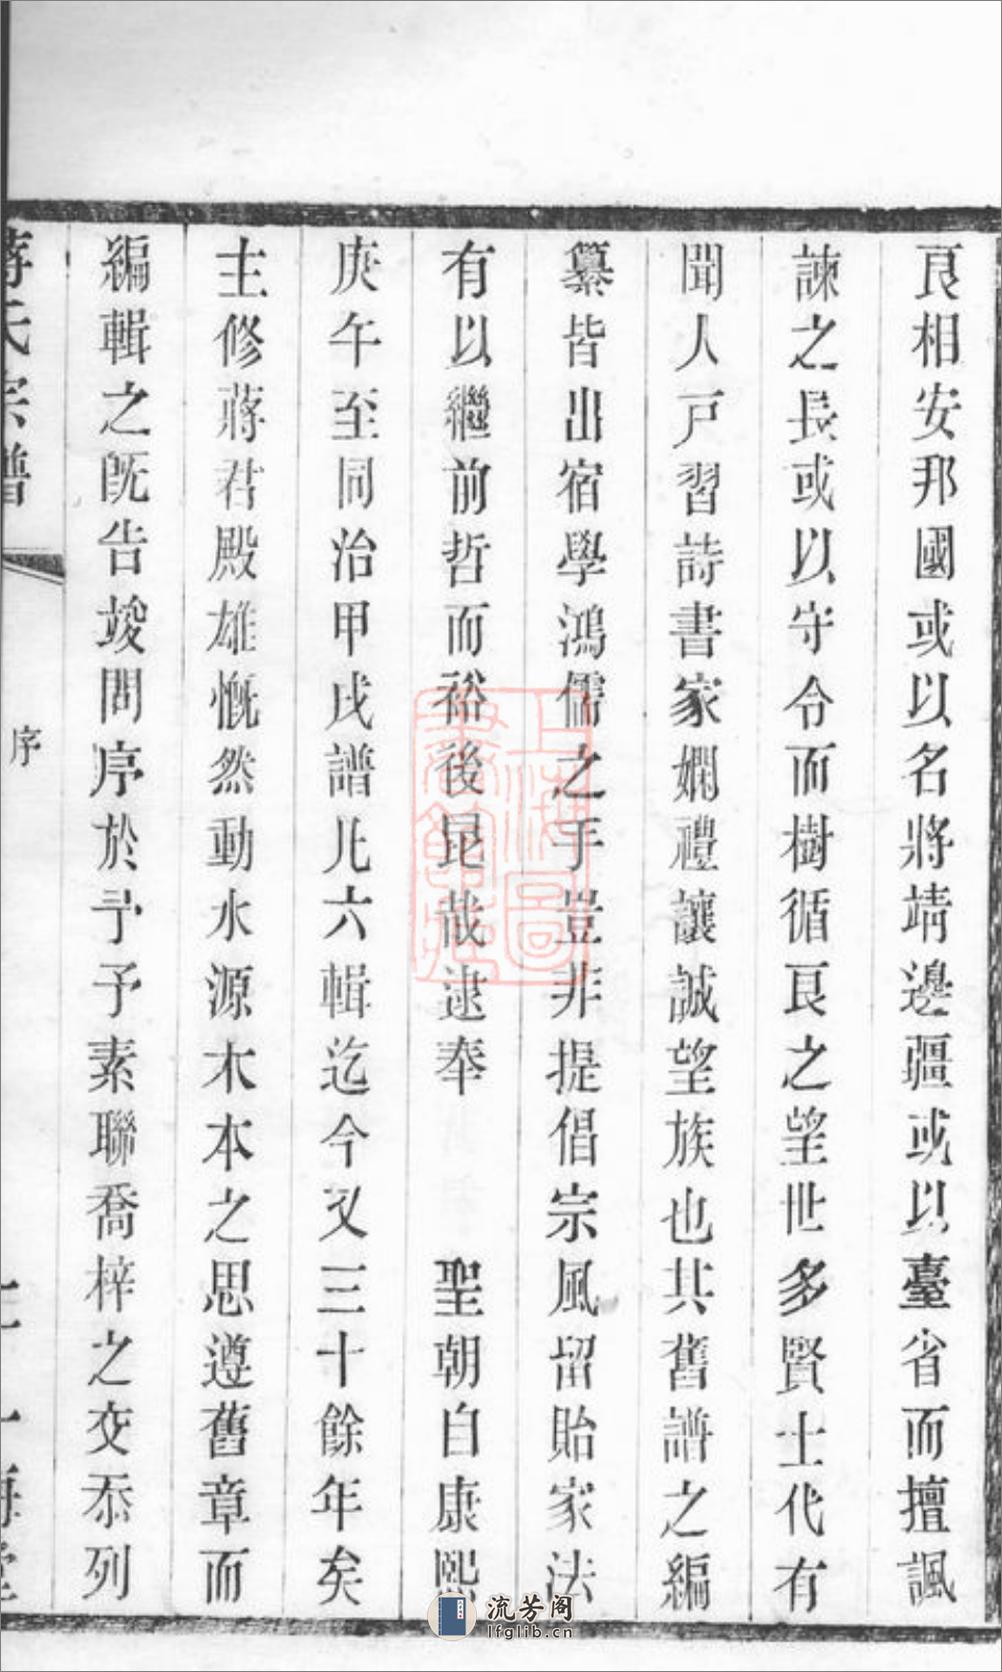 良相安邦國或以名將靖邊疆或以臺省而擅諷
諫之長或以守令而樹循良之望世多賢士代有
聞人戸習詩書家嫻禮讓誠望族也其舊譜之編
纂皆出宿學鴻儒之手豈非提倡宗風留貽家法
有以繼前哲而裕後昆哉逮奉 聖朝自康熙
庚午至同治甲戌譜凡六輯迄今又三十餘年矣
主修蔣君殿雄慨然動水源木本之思遵舊章而
編輯之旣告竣問序於予予素聯喬梓之交忝列
蔣氏宗譜
序
上海圖書館藏
流芳阁
lfglib.cn